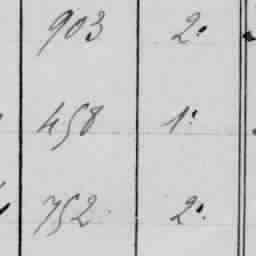 903 2.
458 1.
752 2.